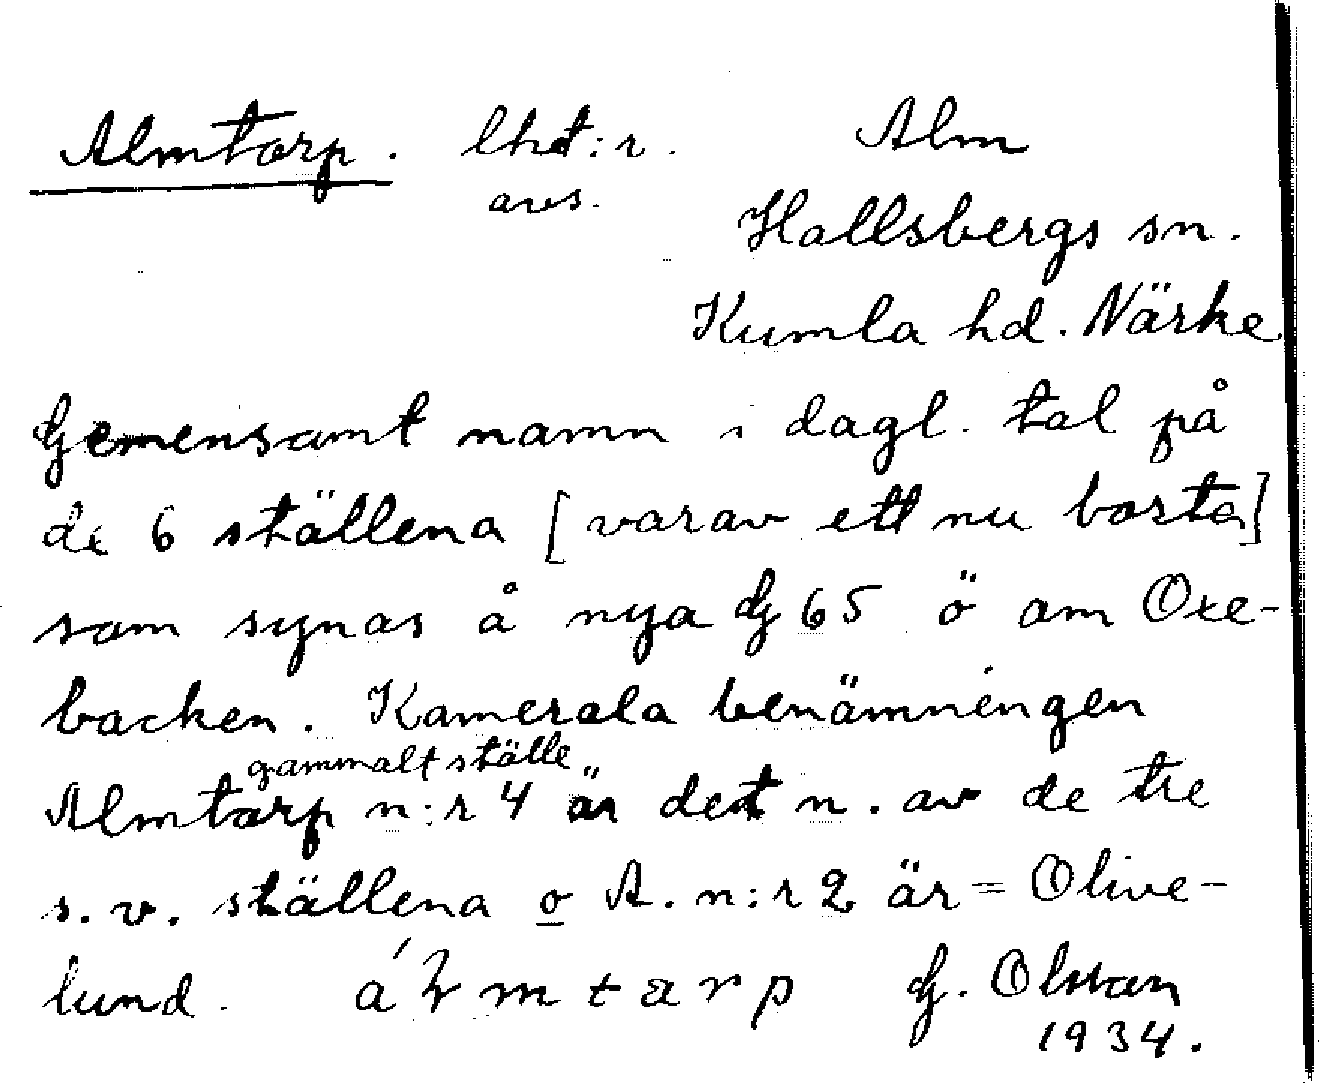 Almtorp. lht:r. Alm
avs.
Hallsbergs sn.
Kumla hd. Närke
Gemensamt namn i dagl. tal på
de 6 ställena [varav ett nu borta]
som synas å nya G 65 ö om Oxe-
backen. Kamerala benämningen
gammalt ställe
Almtorp n:r 4 är det n. av de tre
s.v. ställena o A. n:r 2 är = Olive-
lund. G. Olson
1934.